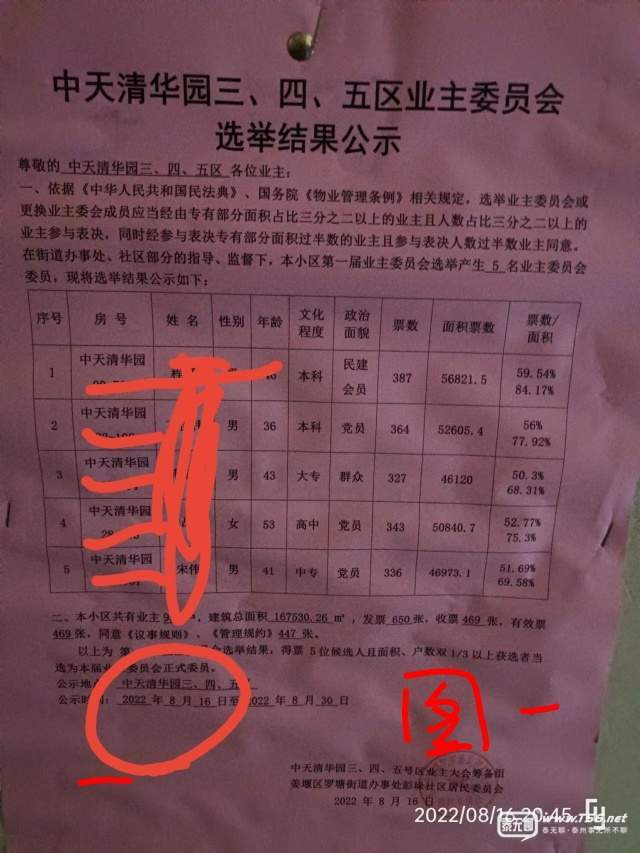 中天清华园三、四、五区业主委员会
选举结果公示
尊敬的 中天清华园三、四、五区 各位业主：
一、依据《中华人民共和国民法典》、国务院《物业管理条例》相关规定，选举业主委员会或
更换业主委会成员应当经由专有部分面积占比三分之二以上的业主且人数占比三分之二以上的
业主参与表决，同时经参与表决专有部分面积过半数的业主且参与表决人数过半数业主同意。
在街道办事处、社区部分的指导、监督下，本小区第一届业主委员会选举产生 5 名业主委员会
委员，现将选举结果公示如下：
序号 房 号 姓 名 性别 年龄 文化程度 政治面貌 票数 面积票数 票数/面积
1 中天清华园 本科 民建会员 387 56821.5 59.54% 84.17%
2 中天清华园 男 36 本科 党员 364 52605.4 56% 77.92%
3 中天清华园 男 43 大专 群众 327 46120 50.3% 68.31%
4 中天清华园 女 53 高中 党员 343 50840.7 52.77% 75.3%
5 中天清华园 男 41 中专 党员 336 46973.1 51.69% 69.58%
二、本小区共有业主 户，建筑总面积 167530.26 ㎡，发票 650 张，收票 469 张，有效票
469 张，同意《议事规则》、《管理规约》447 张。
以上为 第 会选举结果，得票 5 位候选人且面积、户数双 1/3 以上获选者当
选为本届业 委员会正式委员。
公示地 ：中天清华园三、四、五区
公示时间：2022 年 8 月 16 日至 2022 年 8 月 30 日
图一
中天清华园三、四、五号区业主大会筹备组
姜堰区罗塘街道办事处 社区居民委员会
2022 年 8 月 16 日
2022/08/16 20:45
泰无聊 www.T56.net
泰无聊·泰州事无所不聊